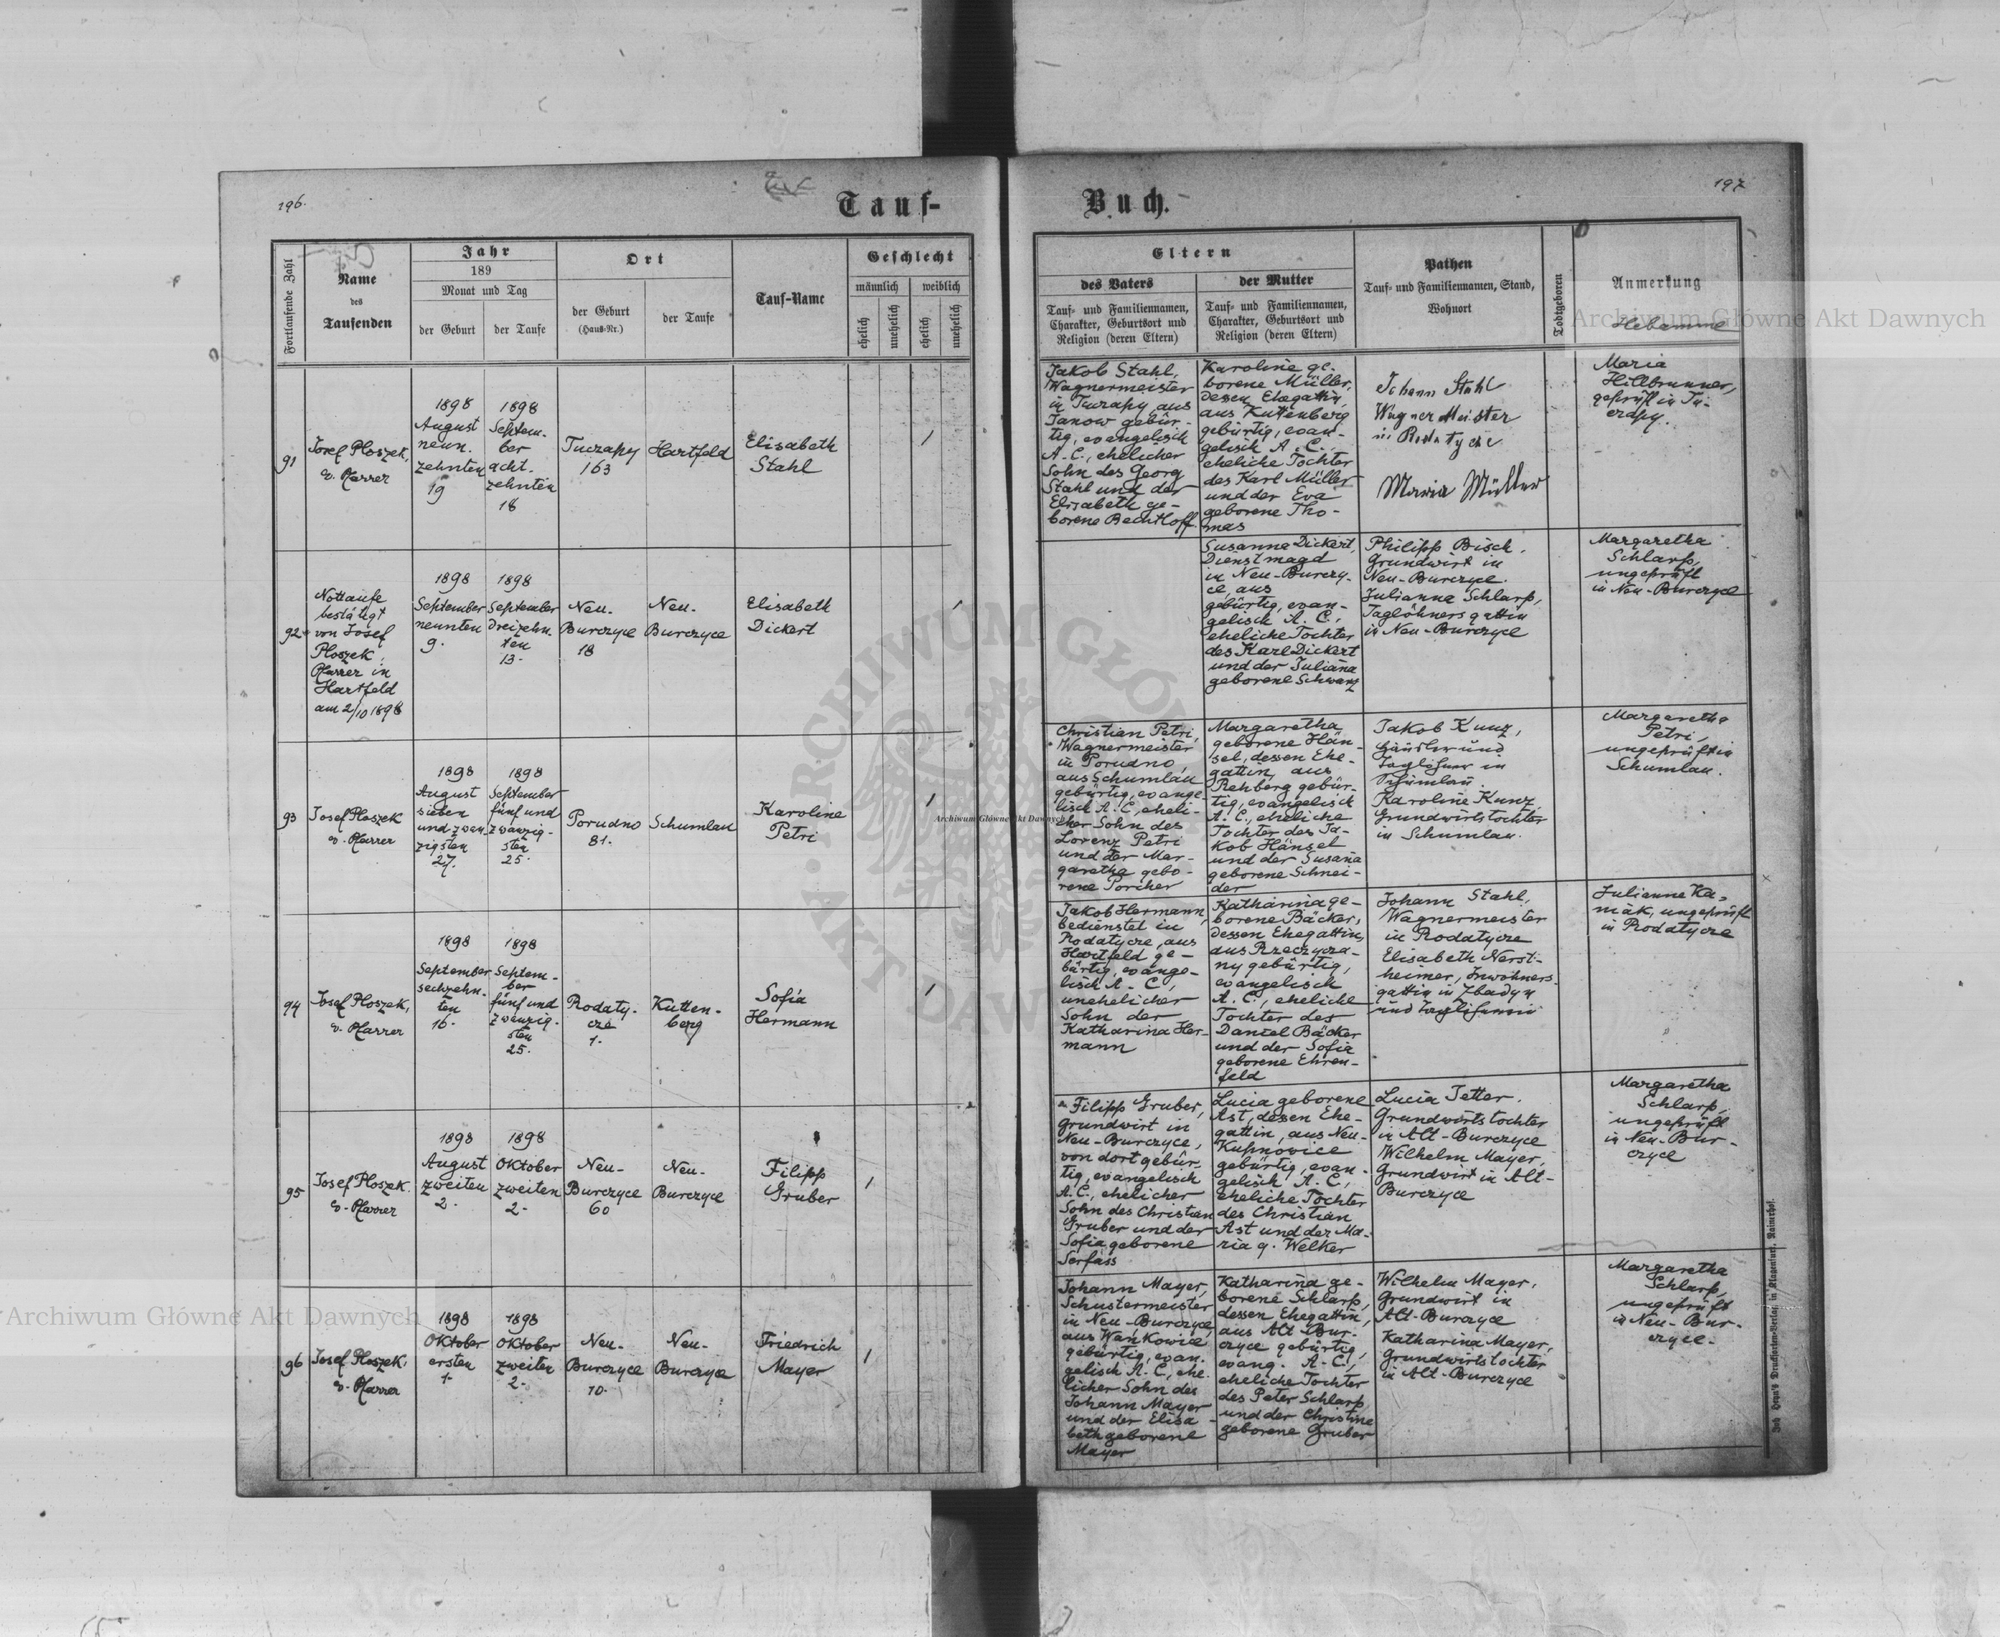 196.
Tauf-
Fortlaufende Zahl
Name
des
Taufenden
Jahr
189
Monat und Tag
der Geburt
der Taufe
Ort
der Geburt
(Haus-Nr.)
der Taufe
Tauf-Name
Geschlecht
männlich
weiblich
ehelich
unehelich
ehelich
unehelich
91
Josef Ploszek,
ev. Pfarrer
1898
August
neun-
zehnten
19
1898
Septem-
ber
acht-
zehnten
18
Tuczapy
163
Hartfeld
Elisabeth
Stahl
/
92
Nottaufe
bestätigt
von Josef
Ploszek,
Pfarrer in
Hartfeld
am 2/10 1898
1898
September
neunten
9.
1898
September
dreizehn-
ten
13.
Neu-
Burczyce
18
Neu-
Burczyce
Elisabeth
Dickert
/
93
Josef Ploszek
ev. Pfarrer
1898
August
sieben
und zwan-
zigsten
27.
1898
September
fünf und
zwanzig-
sten
25.
Porudno
81.
Schumlau
Karoline
Petri
/
94
Josef Ploszek,
ev. Pfarrer
1898
September
sechzehn-
ten
16.
1898
Septem-
ber
fünf und
zwanzig-
sten
25.
Rodaty-
cze
1.
Kutten-
berg
Sofia
Hermann
/
95
Josef Ploszek.
ev. Pfarrer
1898
August
zweiten
2.
1898
Oktober
zweiten
2.
Neu-
Burczyce
60
Neu-
Burczyce
Filipp
Gruber
/
96
Josef Ploszek,
ev. Pfarrer
1898
Oktober
ersten
1.
1898
Oktober
zweiten
2.
Neu-
Burczyce
10.
Neu-
Burczyce
Friedrich
Mayer
/
197
Buch.
Eltern
des Vaters
Tauf- und Familiennamen,
Charakter, Geburtsort und
Religion (deren Eltern)
der Mutter
Tauf- und Familiennamen,
Charakter, Geburtsort und
Religion (deren Eltern)
Pathen
Tauf- und Familiennamen, Stand,
Wohnort
Todtgeboren
Anmerkung
Hebamme
Jakob Stahl,
Wagnermeister
in Tuczapy aus
Janow gebür-
tig, evangelisch
A. C., ehelicher
Sohn des Georg
Stahl und der
Elisabeth ge-
borene Bechtloff
Karoline ge-
borene Müller,
dessen Ehegattin,
aus Kuttenberg
gebürtig, evan-
gelisch A. C.
eheliche Tochter
des Karl Müller
und der Eva
geborene Tho-
mas
Johann Stahl
Wagner Meister
in Rodatyche
Maria Müller
Maria
Hillbrunner,
geprüft in Tu-
czapy.
Susanna Dickert,
Dienstmagd
in Neu-Burczy-
ce, aus
gebürtig, evan-
gelisch A. C.,
eheliche Tochter
des Karl Dickert
und der Juliana
geborene Schwarz
Philipp Bisch.
Grundwirt in
Neu-Burczyce.
Julianna Schlarp,
Taglöhnersgattin
in Neu-Burczyce
Margaretha
Schlarp,
ungeprüft
in Neu-Burczyce
Christian Petri,
Wagnermeister
in Porudno,
aus Schumlau
gebürtig, evange-
lisch A. C., eheli-
cher Sohn des
Lorenz Petri
und der Mar-
garetha gebo-
rene Porcher
Margaretha
geborene Hän-
sel, dessen Ehe-
gattin, aus
Rehberg gebür-
tig, evangelisch
A. C., eheliche
Tochter des Ja-
kob Hänsel
und der Susana
geborene Schnei-
der
Jakob Kunz,
Häusler und
Taglöhner in
Schumlau.
Karoline Kunz,
Grundwirtstochter
in Schumlau.
Margaretha
Petri,
ungeprüft in
Schumlau.
Jakob Hermann,
bedienstet in
Rodatycze, aus
Hartfeld ge-
bürtig, evange-
lisch A. C.,
unehelicher
Sohn der
Katharina Her-
mann
Katharina ge-
borene Bäcker,
dessen Ehegattin,
aus Rzeczycza-
ny gebürtig,
evangelisch
A. C., eheliche
Tochter des
Daniel Bäcker
und der Sofia
geborene Ehren-
feld
Johann Stahl,
Wagnermeister
in Rodatycze
Elisabeth Nerst-
heimer, Inwohners-
gattin in Zbadyn
Julianne Ka-
niak, ungeprüft
in Rodatycze
Filipp Gruber,
Grundwirt in
Neu-Burczyce,
von dort gebür-
tig, evangelisch
A. C., ehelicher
Sohn des Christian
Gruber und der
Sofia geborene
Serfass
Lucia geborene
Ast, dessen Ehe-
gattin, aus Neu-
Kupnovice
gebürtig, evan-
gelisch A. C.,
eheliche Tochter
des Christian
Ast und der Ma-
ria g. Welker
Lucia Jetter.
Grundwirtstochter
in Alt-Burczyce
Wilhelm Mayer,
Grundwirt in Alt-
Burczyce
Margaretha
Schlarp,
ungeprüft
in Neu-Bur-
czyce
Johann Mayer,
Schustermeister
in Neu-Burczyce,
aus Wankowice
gebürtig, evan-
gelisch A. C., ehe-
licher Sohn des
Johann Mayer
und der Elisa-
beth geborene
Mayer
Katharina ge-
borene Schlarp,
dessen Ehegattin,
aus Alt-Bur-
czyce gebürtig,
evang. A. C.,
eheliche Tochter
des Peter Schlarp
und der Christine
geborene Gruber
Wilhelm Mayer,
Grundwirt in
Alt-Burczyce
Katharina Mayer,
Grundwirtstochter
in Alt-Burczyce
Margaretha
Schlarp,
ungeprüft
in Neu-Bur-
czyce.
Joh. Heyn's Druckforten-Verlag, in Klagenfurt, Rainerhof.
Archiwum Główne Akt Dawnych
Archiwum Główne Akt Dawnych
Archiwum Główne Akt Dawnych
ARCHIWUM GŁÓWNE AKT DAWNYCH